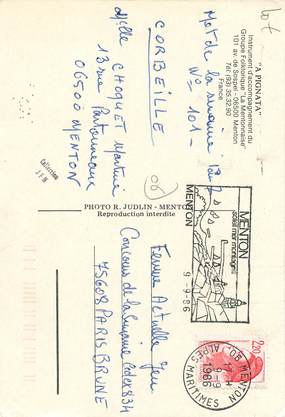 "A PIGNATA"
Instrument d'accompagnement du
Groupe Folklorique "La Mentonnaise"
101 av. de Sospel - 06500 Menton
Tél (93) 35.32.90
France
Mot de la semaine
N° 101 -
CORBEILLE
Melle CHOQUET Martine
13 rue
06500 MENTON
Collection
PHOTO R. JUDLIN - MENTON
Reproduction interdite
MENTON
MENTON
soleil mer montagne
9-9-86
06 MENTON
17 H
9-9
1986
ALPES MARITIMES
2,20
Femme Actuelle Jeu
Concours de la semaine Cedex 834
75608 PARIS BRUNE